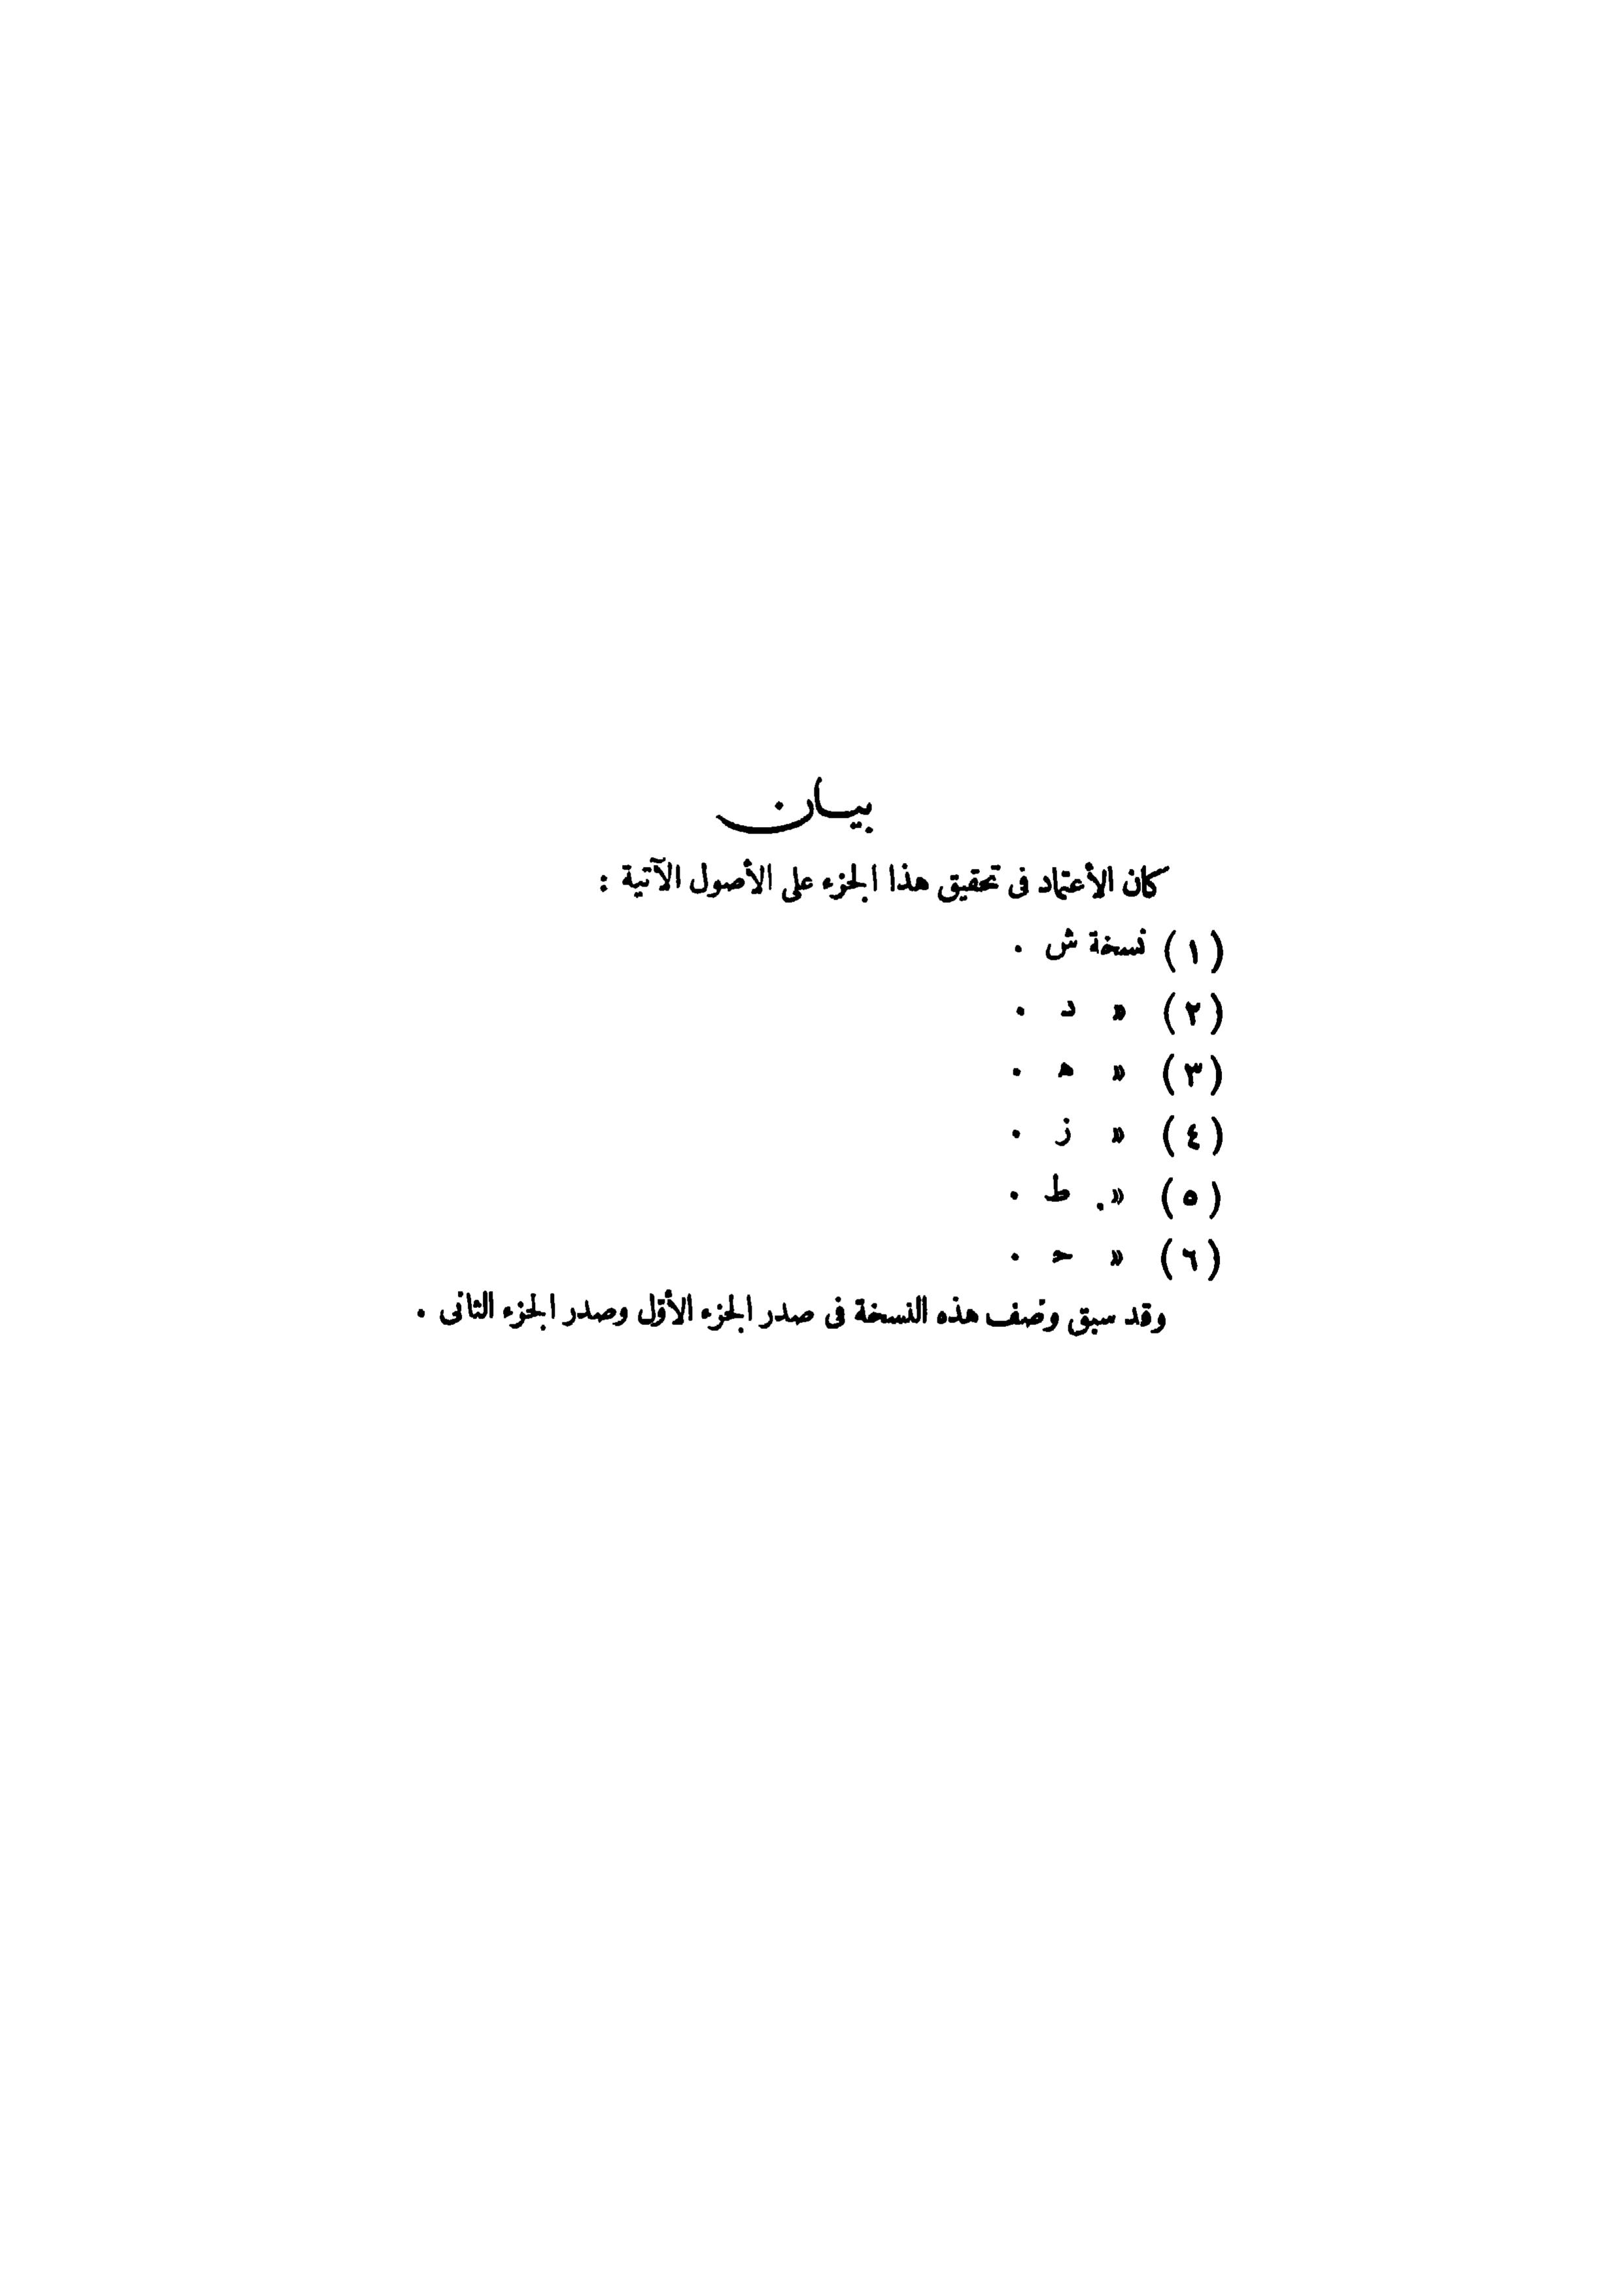 بيان
كان الأعتماد فى تحقيق هذا الجزء على الأصول الآتية :
(١) نسخة ش .
(٢) » د .
(٣) » ه .
(٤) » ز .
(٥) » ط .
(٦) » ح .
وقد سبق وصف هذه النسخة فى صدر الجزء الأوّل وصدر الجزء الثانى .